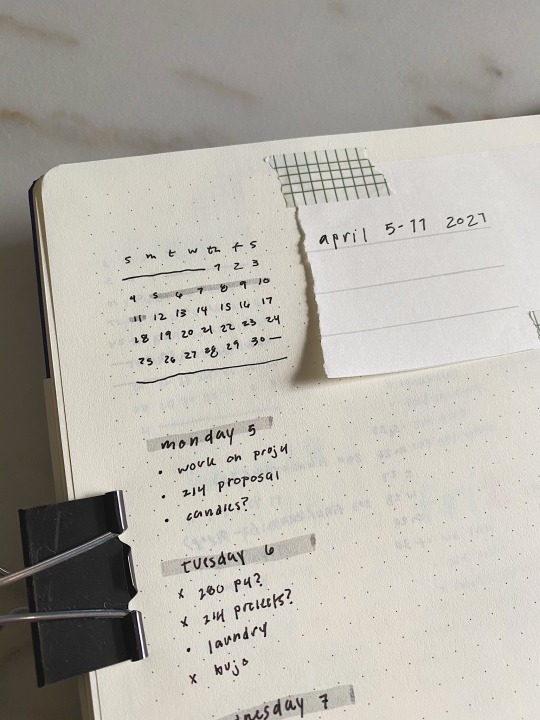 s m t w th f s
1 2 3
4 5 6 7 8 9 10
11 12 13 14 15 16 17
18 19 20 21 22 23 24
25 26 27 28 29 30 —
april 5-11 2021
monday 5
• work on proj4
• 214 proposal
• candles?
tuesday 6
x 280 p4?
x 214 pretests?
• laundry
x bujo
nesday 7